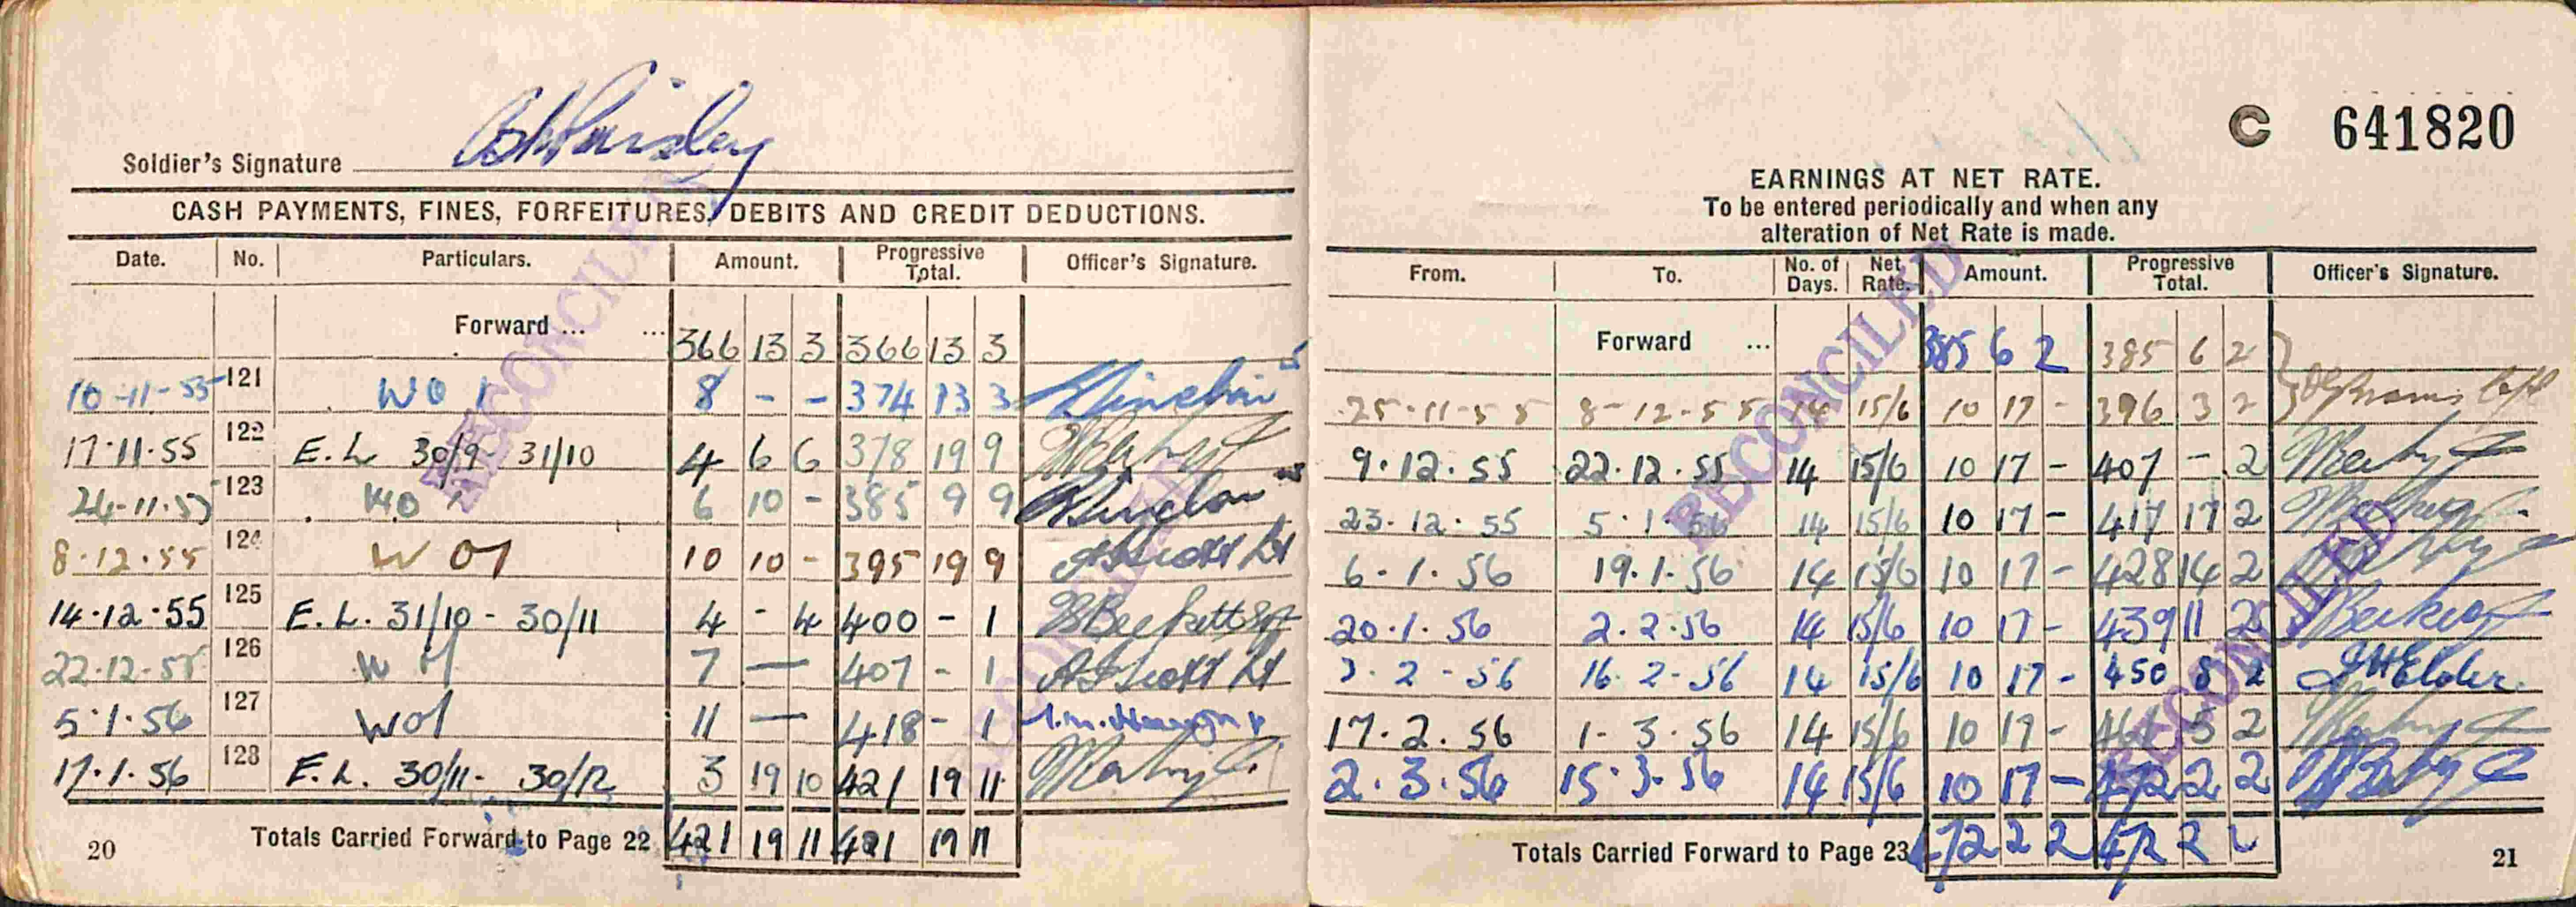 Soldier's Signature
CASH PAYMENTS, FINES, FORFEITURES, DEBITS AND CREDIT DEDUCTIONS.
Date. No. Particulars. Amount. Progressive Total. Officer's Signature.
Forward ... ... 366 13 3 366 13 3
10-11-55 121 WO1 8 - - 374 13 3
17.11.55 122 E.L 30/9 - 31/10 4 6 6 378 19 9
24-11-55 123 6 10 - 385 9 9
8.12.55 124 WO1 10 10 - 395 19 9 Scott Lt
14.12.55 125 E.L. 31/10 - 30/11 4 - 4 400 - 1 Beckett
22.12.55 126 WO1 7 — 407 - 1 Scott Lt
5.1.56 127 WO1 11 — 418 - 1
17.1.56 128 E.L. 30/11 - 30/12 3 19 10 421 19 11
Totals Carried Forward to Page 22 421 19 11 421 19 11
20
RECONCILED
RECONCILED
C 641820
EARNINGS AT NET RATE.
To be entered periodically and when any
alteration of Net Rate is made.
From. To. No. of Days. Net Rate. Amount. Progressive Total. Officer's Signature.
Forward ... 385 6 2 385 6 2
25.11-55 8-12-55 14 15/6 10 17 - 396 3 2
9.12.55 22.12.55 14 15/6 10 17 - 407 - 2
23.12.55 5.1.56 14 15/6 10 17 - 417 17 2
6.1.56 19.1.56 14 15/6 10 17 - 428 14 2
20.1.56 2.2.56 14 15/6 10 17 - 439 11 2
3.2-56 16.2-56 14 15/6 10 17 - 450 8 2 Elder
17.2.56 1-3.56 14 15/6 10 17 - 461 5 2
2.3.56 15.3.56 14 15/6 10 17 - 472 2 2
Totals Carried Forward to Page 23 472 2 2 472 2 2
21
RECONCILED
RECONCILED